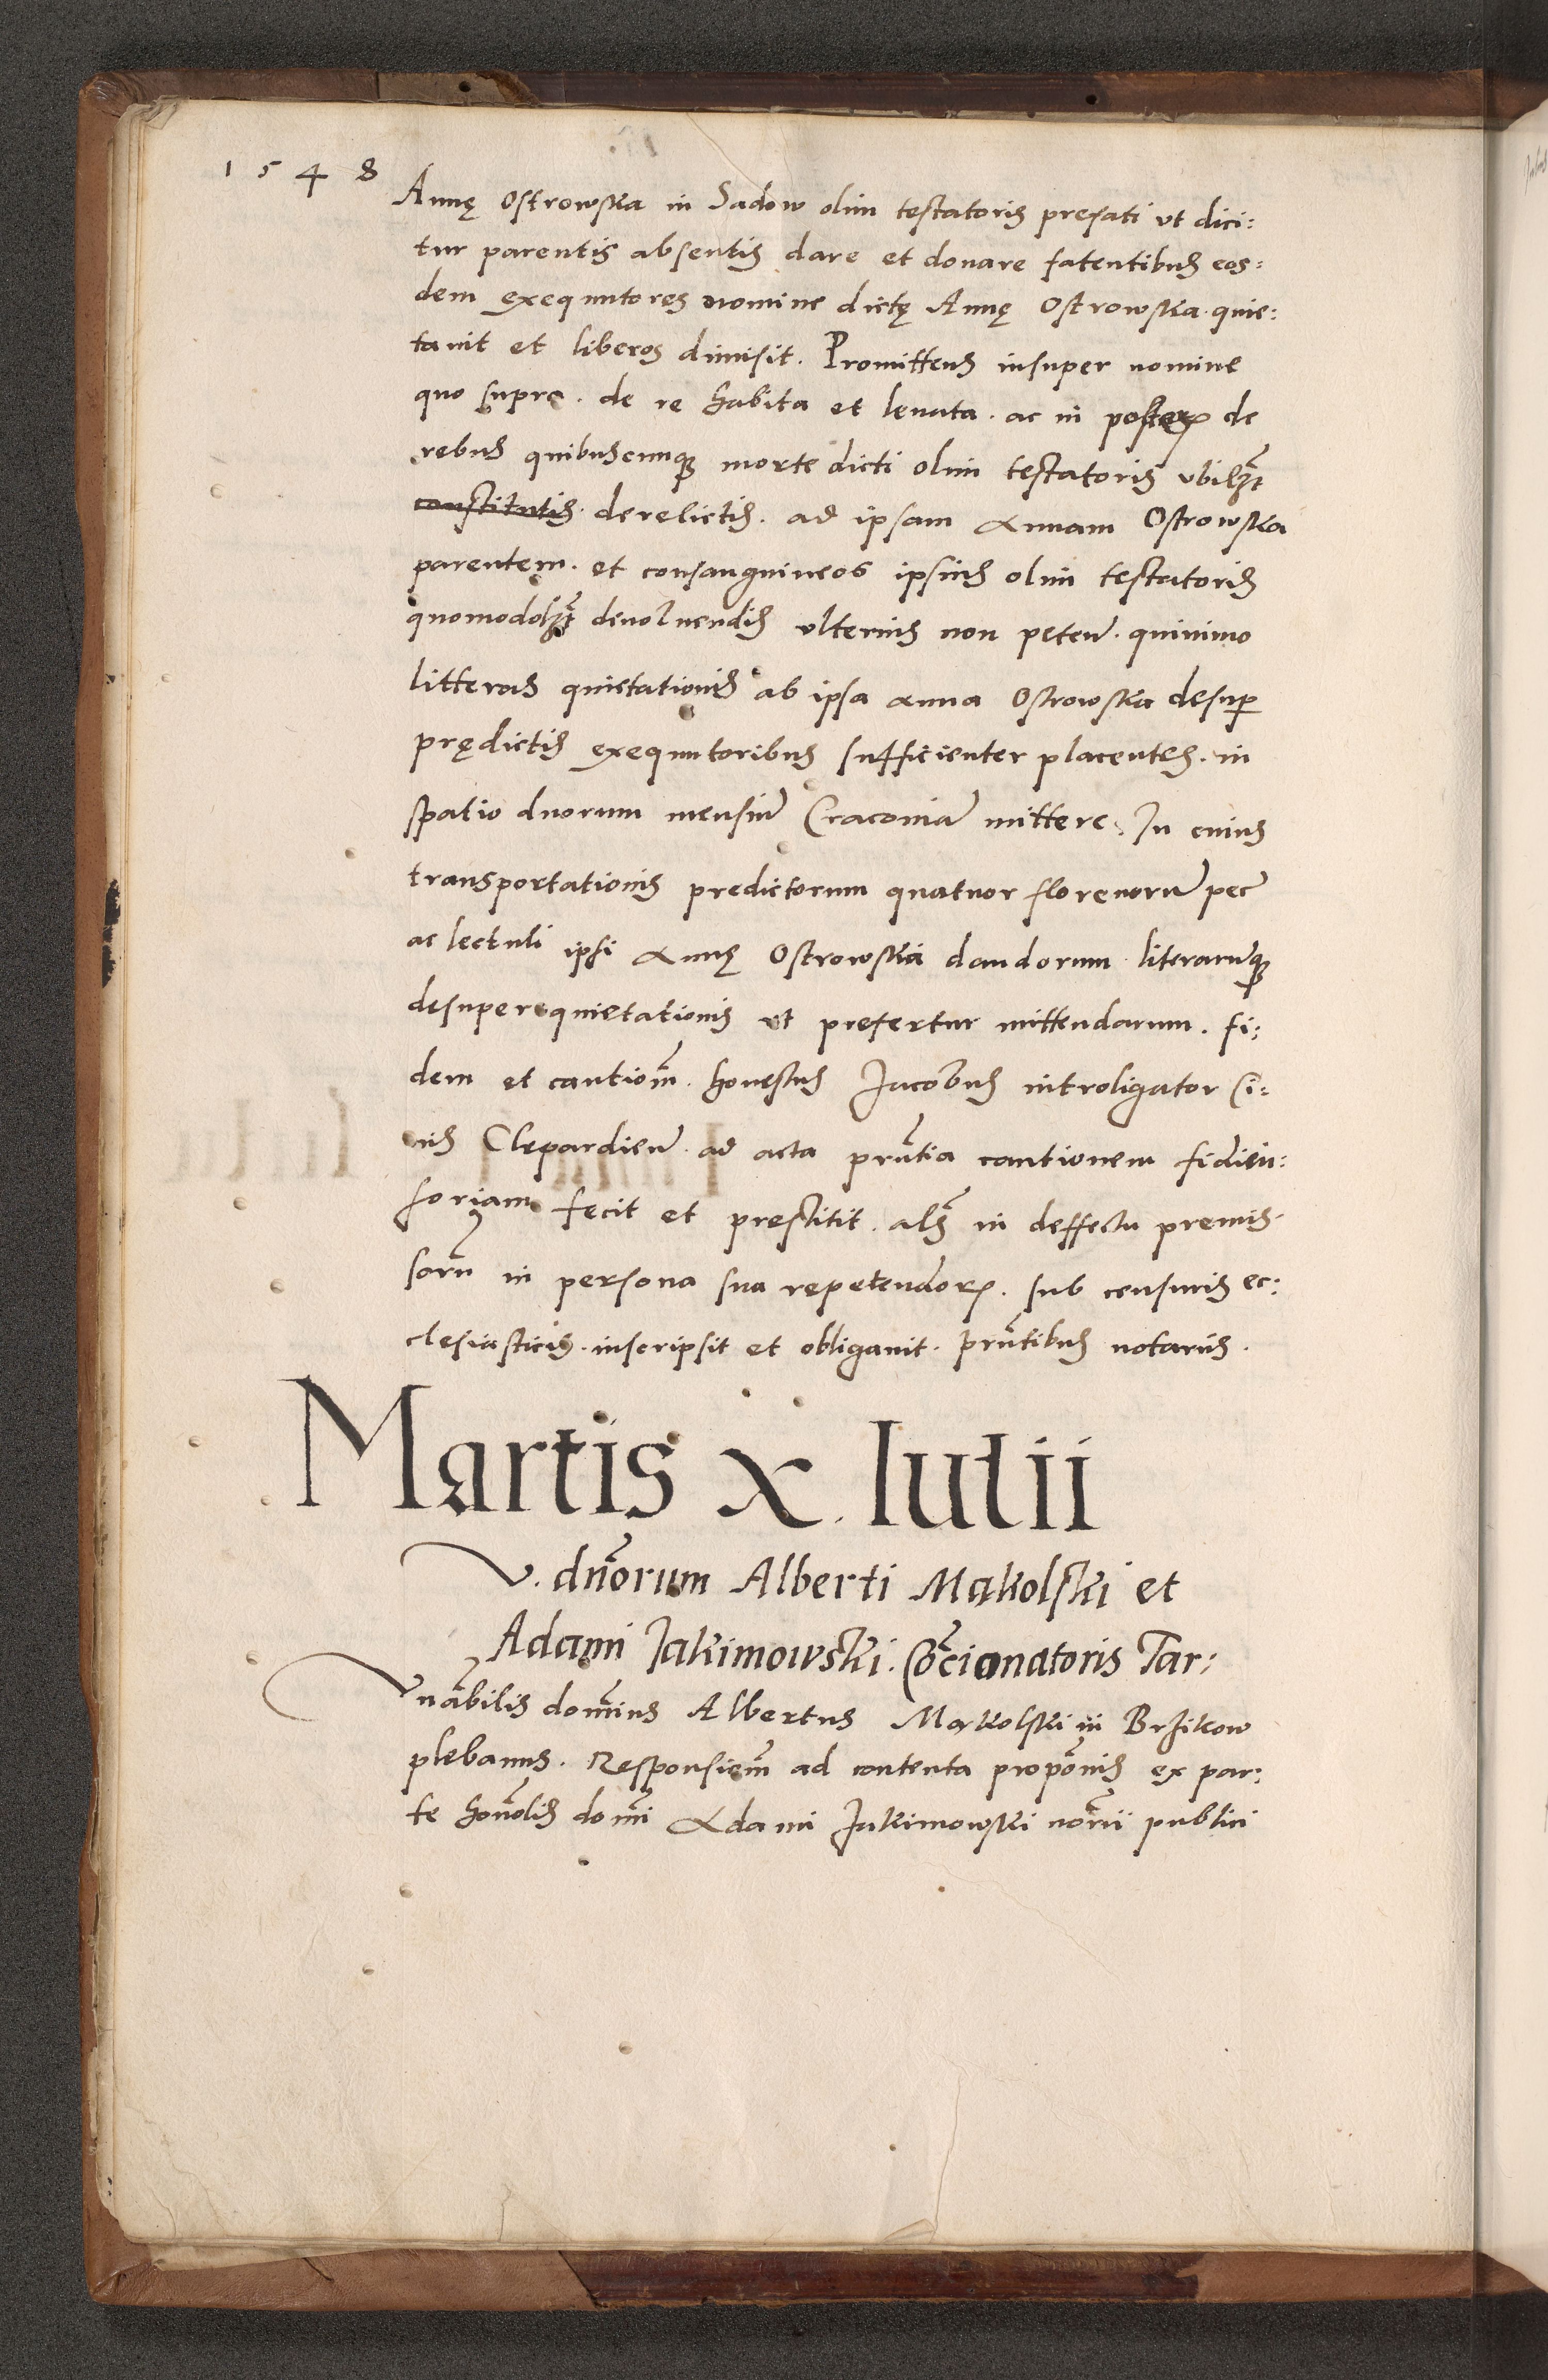 1548
Annę Ostrowska in Sadow olim testatoris prefati ut dici:
tur parentis absentis dare et donare fatentibus eos:
dem exequutores nomine dictę Annę Ostrowska quie:
tauit et liberos dimisit. Promittens insuper nomine
quo supra. de re habita et leuata. ac in posteꝝ de
rebus quibuscunqꝫ morte dicti olim testatoris ubilꝫt
constitutis derelictis. ad ipsam Annam Ostrowska
parentem. et consanguineos ipsius olim testatoris
quomodolꝫt deuoluendis ulterius non petere. quinimo
litteras quietationis ab ipsa Anna Ostrowska desuper
prędictis exequutoribus sufficienter placentes. in
spatio duorum mensiū Cracouiā mittere. In cuius
transportationis predictorum quatuor florenorū pec̄
ac lectuli ipsi Annę Ostrowska dandorum literarumqꝫ
desuper quietationis ut prefertur mittendarum. fi:
dem et cautiom̄. honestus Jacobus introligator Ci:
uis Clepardien̄ ad acta prn̄tia cautionem fideius:
soriam fecit et prestitit. als̄ in deffectu premis
sorū in persona sua repetendoꝝ. sub censuris ec:
clesiasticis. inscripsit et obligauit. prn̄tibus notariis.
Martis x. Iulii
V. dn̄orum Alberti Makolski et
Adami Jakimowski. Cōcionatoris Tar:
Vnābilis domīnus Albertus Makolski in Brzikow
plebanus. Responsiem̄ ad contenta propōnis ex par:
te honōlis dom̄i Adami Jakimowski norīi publici